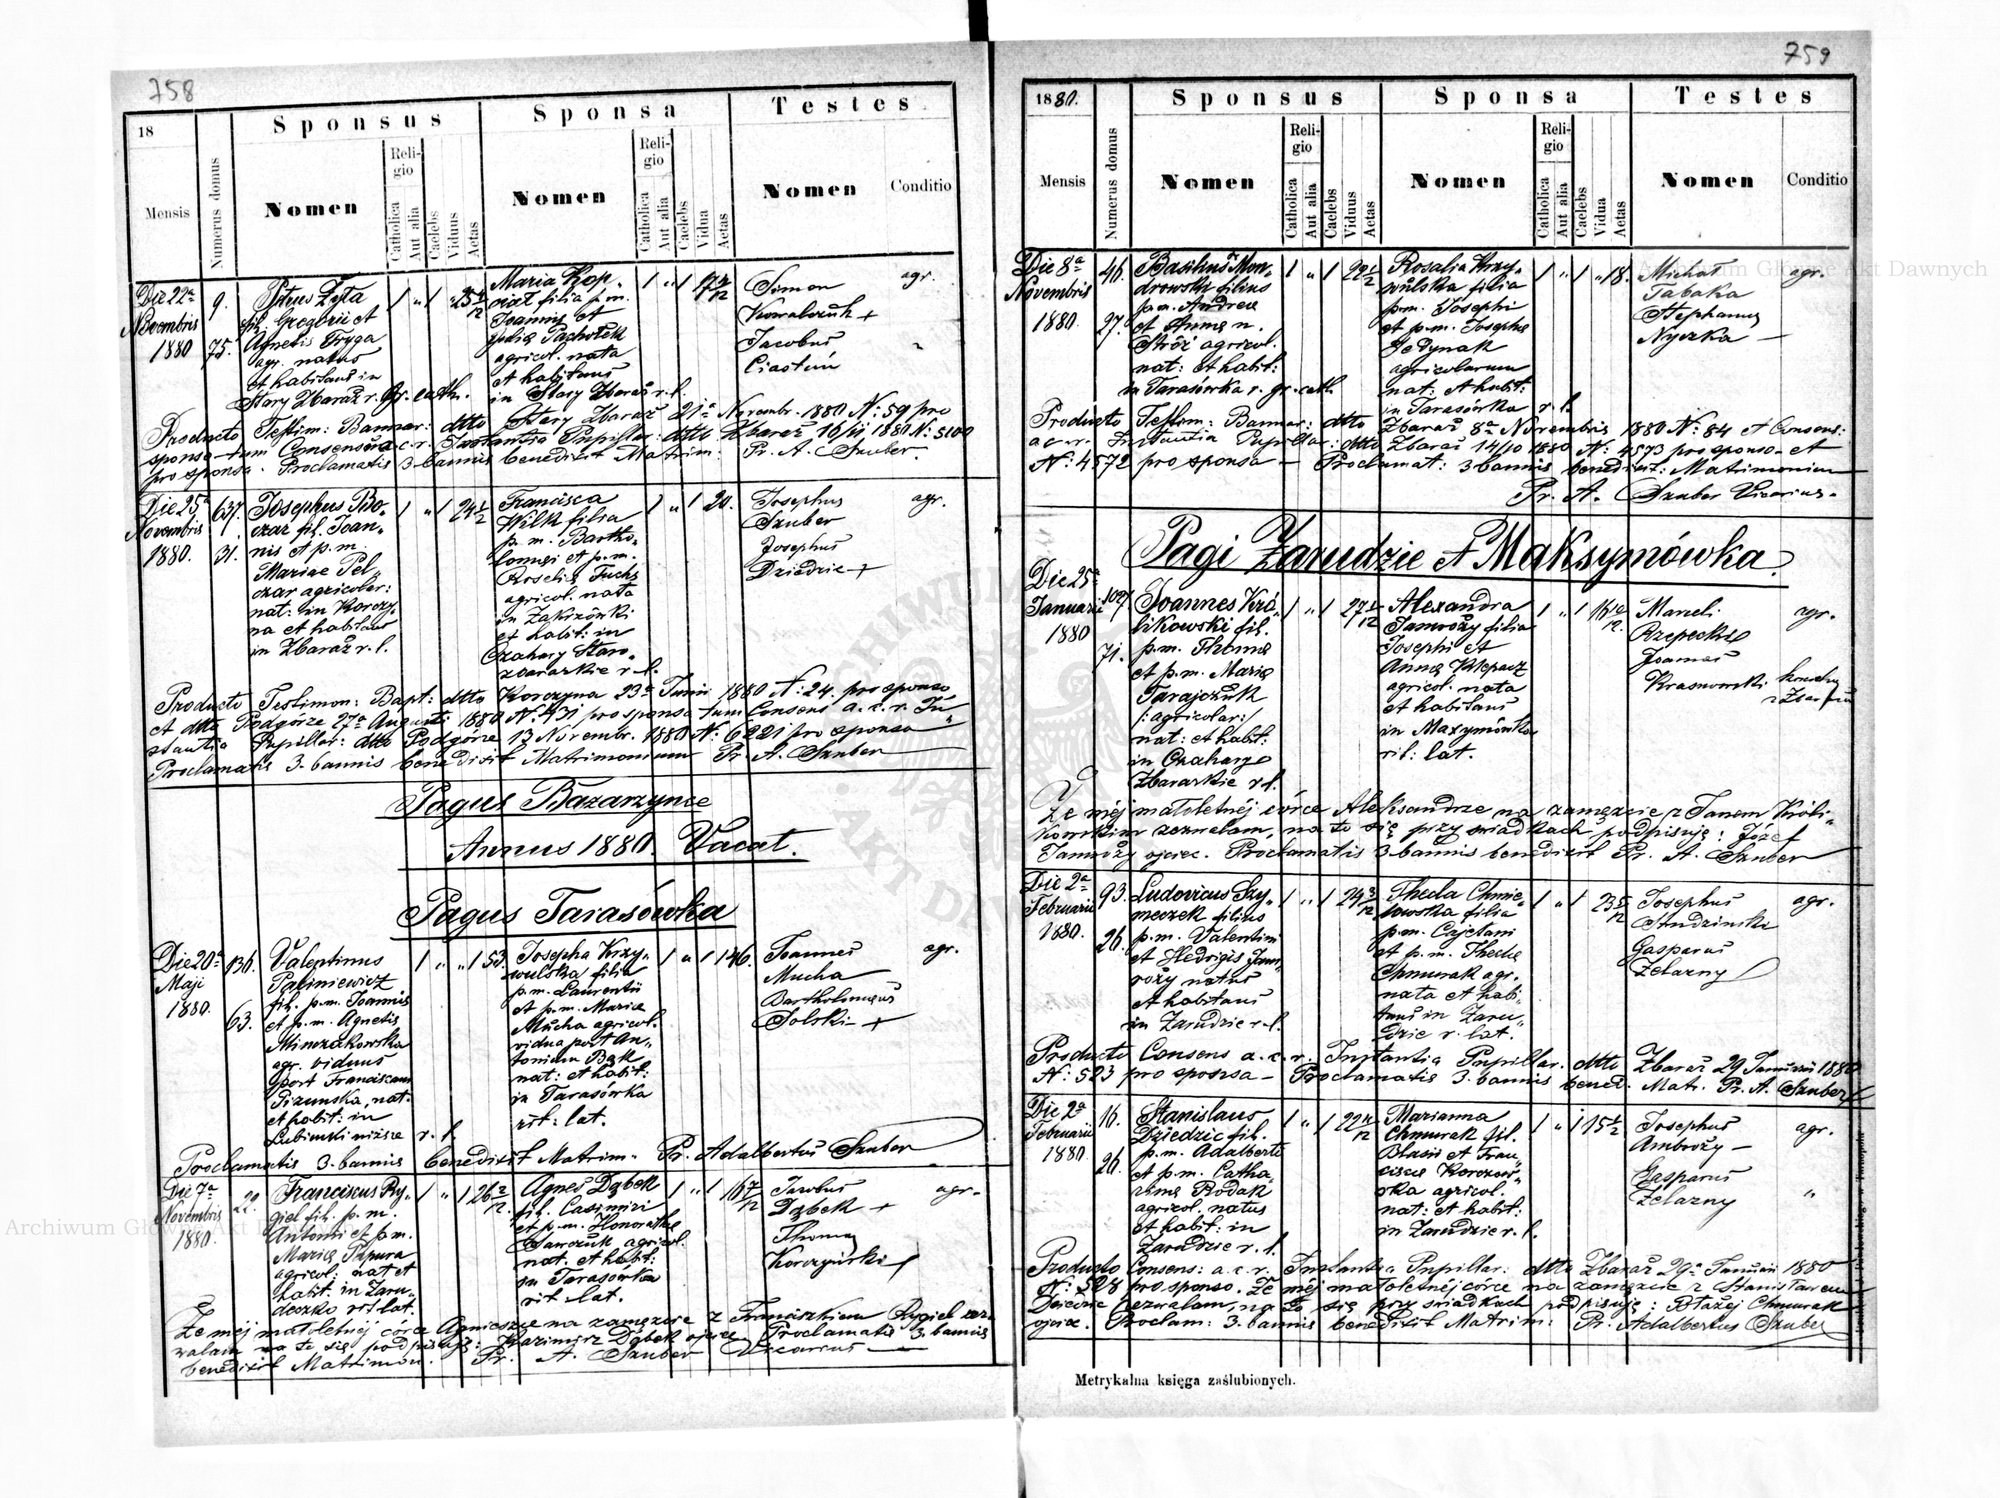 758
18
Sponsus
Sponsa
Testes
Mensis
Numerus domus
Nomen
Religio
Catholica
Aut alia
Caelebs
Viduus
Aetas
Nomen
Religio
Catholica
Aut alia
Caelebs
Vidua
Aetas
Nomen
Conditio
Die 22a
Novembris
1880
9.
75.
Petrus Zyta
fil. Gregorii et
Agnetis Fryga
agr. natus
et habitans in
Stary Zbaraż r. gr. cath.
1 " 1
Maria Kop-
filia p.m.
Joannis et
Julię Pachołek
agricol. nata
et habitans
in Stary Zbaraż r. l.
1 " 1
Simon
Kowalczuk +
Jacobus
Ciastoń
agr.
"
Producto Testim: Bannor: dtto Stary Zbaraż 21a Novembr. 1880 N: 59 pro
sponso tum Consensu a.c.r. Instantia Pupillar: dtto Zbaraż 16/11 1880 N: 5100
pro sponsa. Proclamatis 3 bannis benedixit Matrim: Pr. A. Szuber.
Die 25a
Novembris
1880.
637.
31.
Josephus Bo-
czar fil. Joan-
nis et p.m.
Mariae Pel-
czar agricolar:
nat: in Korczy-
na et habitans
in Zbaraż r. l.
1 " 1 24 1/2
Francisca
Wilk filia
p. m. Bartho-
lomęi et p.m.
Roselię Fuchs
agricol. nata
in Zakrzówki
et habit: in
Czahary Staro-
zbaraskie r. l.
1 " 1 20.
Josephus
Szuber
Josephus
Dziedzic +
agr.
Producto Testimon: Bapt: dtto Korczyna 23a Junii 1880 N: 24. pro sponso
et dtto Podgórze 27a Augusti 1880 N: 431 pro sponsa tum Consens a. c. r. In-
stantia Pupillar: dtto Podgórze 13 Novembr. 1880 N: 6221 pro sponsa
Proclamatis 3. bannis benedixit Matrimonium Pr. A. Szuber
Pagus Bazarzynce
Annus 1880. Vacat.
Pagus Tarasówka
Die 20a
Maji
1880.
136.
63.
Valentinus
Paliniewicz
fil. p.m. Joannis
et p.m. Agnetis
Minczakowska
agr. viduus
post Franciscam
Pizunska, nat.
et habit: in
Lubianki niższe r. l.
1 " " 1 53.
Josepha Krzy-
wulska filia
p.m. Laurentii
et p.m. Mariae
Mucha agricol.
vidua post An-
tonium Bąk
nat: et habit:
in Tarasówka
rit: lat.
1 " 1 46.
Joannes
Mucha
Bartholomęus
Solski +
agr.
Proclamatis 3. bannis benedixit Matrim. Pr. Adalbertus Szuber
Die 7a
Novembris
1880.
22.
Franciscus Ry-
giel fil. p.m.
Antonii et p.m.
Marię Papura
agricol: nat et
habit. in Zaru-
deczko rit lat.
1 " 1
Agnes Dąbek
fil. Casimiri
et p.m. Honorathę
Sawczuk agricol.
nat. et habit:
in Tarasówka
rit. lat.
1 " 1 16 7/12
Jacobus
Dąbek +
Thomas
Korczyński
agr.
Że mej małoletnéj córce Agnieszce na zamęzcie z Franciszkiem Rygiel zez-
walam na to się podpisuję: Kazimirz Dąbek ojciec. Proclamatis 3. bannis
benedixit Matrimon. Pr. A. Szuber Vicarius
759
1880.
Sponsus
Sponsa
Testes
Mensis
Numerus domus
Nomen
Religio
Catholica
Aut alia
Caelebs
Viduus
Aetas
Nomen
Religio
Catholica
Aut alia
Caelebs
Vidua
Aetas
Nomen
Conditio
Die 8a
Novembris
1880.
46.
27.
Basilius Mon-
drowski filius
p.m. Andreę
et Annę n.
Stróż agricol.
nat: et habit:
in Tarasówka r. gr. cath.
1 " 1 22 1/2
Rosalia Krzy-
wulska filia
p.m. Josephi
et p.m. Josephę
Jedynak
agricolarum
nat: et habit:
in Tarasówka r. l.
1 " 1 " 18.
Michał
Tabaka
Stephanus
Nyczka
agr.
Producto Testim: Bannor: dtto Zbaraż 8a Novembris 1880 N: 84 et Consens:
a c. r. Instantia Pupillar: dtto Zbaraż 14/10 1880 N: 4573 pro sponso et
N: 4572 pro sponsa — Proclamat: 3 bannis benedixit: Matrimonium
Pr. A. Szuber Vicarius.
Pagi Zarudzie et Maksymówka.
Die 25a
Januarii
1880
107.
71.
Joannes Kró-
likowski fil.
p.m. Thomę
et p.m. Marię
Tarajczuk
/: agricolar:/
nat: et habit:
in Czahary
Zbaraskie r l.
1 " 1 27 1/12
Alexandra
Jamroży filia
Josephi et
Annę Klepacz
agricol. nata
et habitans
in Maxymówka
rit: lat.
1 " 1
Marceli
Rzepecki
Joannes
Krasnowski
agr.
Że méj małoletnéj córce Aleksandrze na zamęzcie z Janem Króli-
kowskim zezwalam, na to się przy świadkach podpisuję: Józef
Jamroży ojciec. Proclamatis 3 bannis benedixit Pr. A. Szuber
Die 2a
Februarii
1880.
93.
26.
Ludovicus Szy-
meczek filius
p.m. Valentini
et Hedvigis Jam-
roży natus
et habitans
in Zarudzie r. l.
1 " 1 24 3/12
Thecla Chmie-
lowska filia
p.m. Cajetani
et p.m. Theclę
Chmurak agr.
nata et habi-
tans in Zaru-
dzie r. lat.
1 " 1 23 5/12
Josephus
Studzinski
Gasparus
Żelazny
agr.
Producto Consens a. c. r. Instantia Pupillar. dtto Zbaraż 29 Januarii 1880
N: 523 pro sponsa — Proclamatis 3. bannis bened. Matr. Pr. A. Szuber
Die 2a
Februarii
1880.
16.
26.
Stanislaus
Dziedzic fil.
p.m. Adalberti
et p.m. Catha-
rinę Rodak
agricol. natus
et habit: in
Zarudzie r. l.
1 " 1
Marianna
Chmurak fil.
Blasii et Fran-
ciscę Korczow-
ska agricol.
nat: et habit:
in Zarudzie r. l.
1 " 1 15 1/2
Josephus
Ambroży —
Gasparus
Żelazny
agr.
"
Producto Consens: a. c. r. Instantia Pupillar: dtto Zbaraż 29a Januarii 1880
N: 528 pro sponso. Że méj małoletnéj córce na zamęzcie z Stanisławem
Dziedzic zezwalam, na to się przy świadkach podpisuję: Błażej Chmurak
ojciec. Proclam: 3. bannis benedixit Matrim: Pr. Adalbertus Szuber
Metrykalna księga zaślubionych.
Archiwum Główne Akt Dawnych